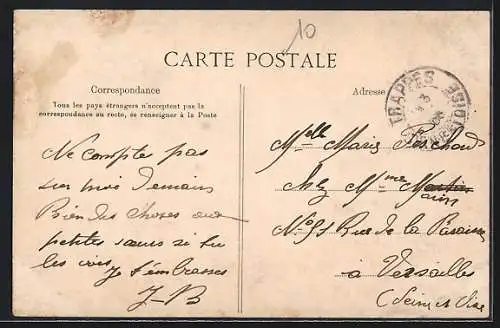 10
CARTE POSTALE
Correspondance
Tous les pays étrangers n'acceptent pas la
correspondance au recto, se renseigner à la Poste
Ne comptes pas
sur moi demain
Bien des choses aux
petites sœurs si tu
les vois, Je t'embrasse
J-B
Adresse
TRAPPES
Melle Marie
Chez Mme
Rue de la Paroisse
à Versailles
(Seine et Oise